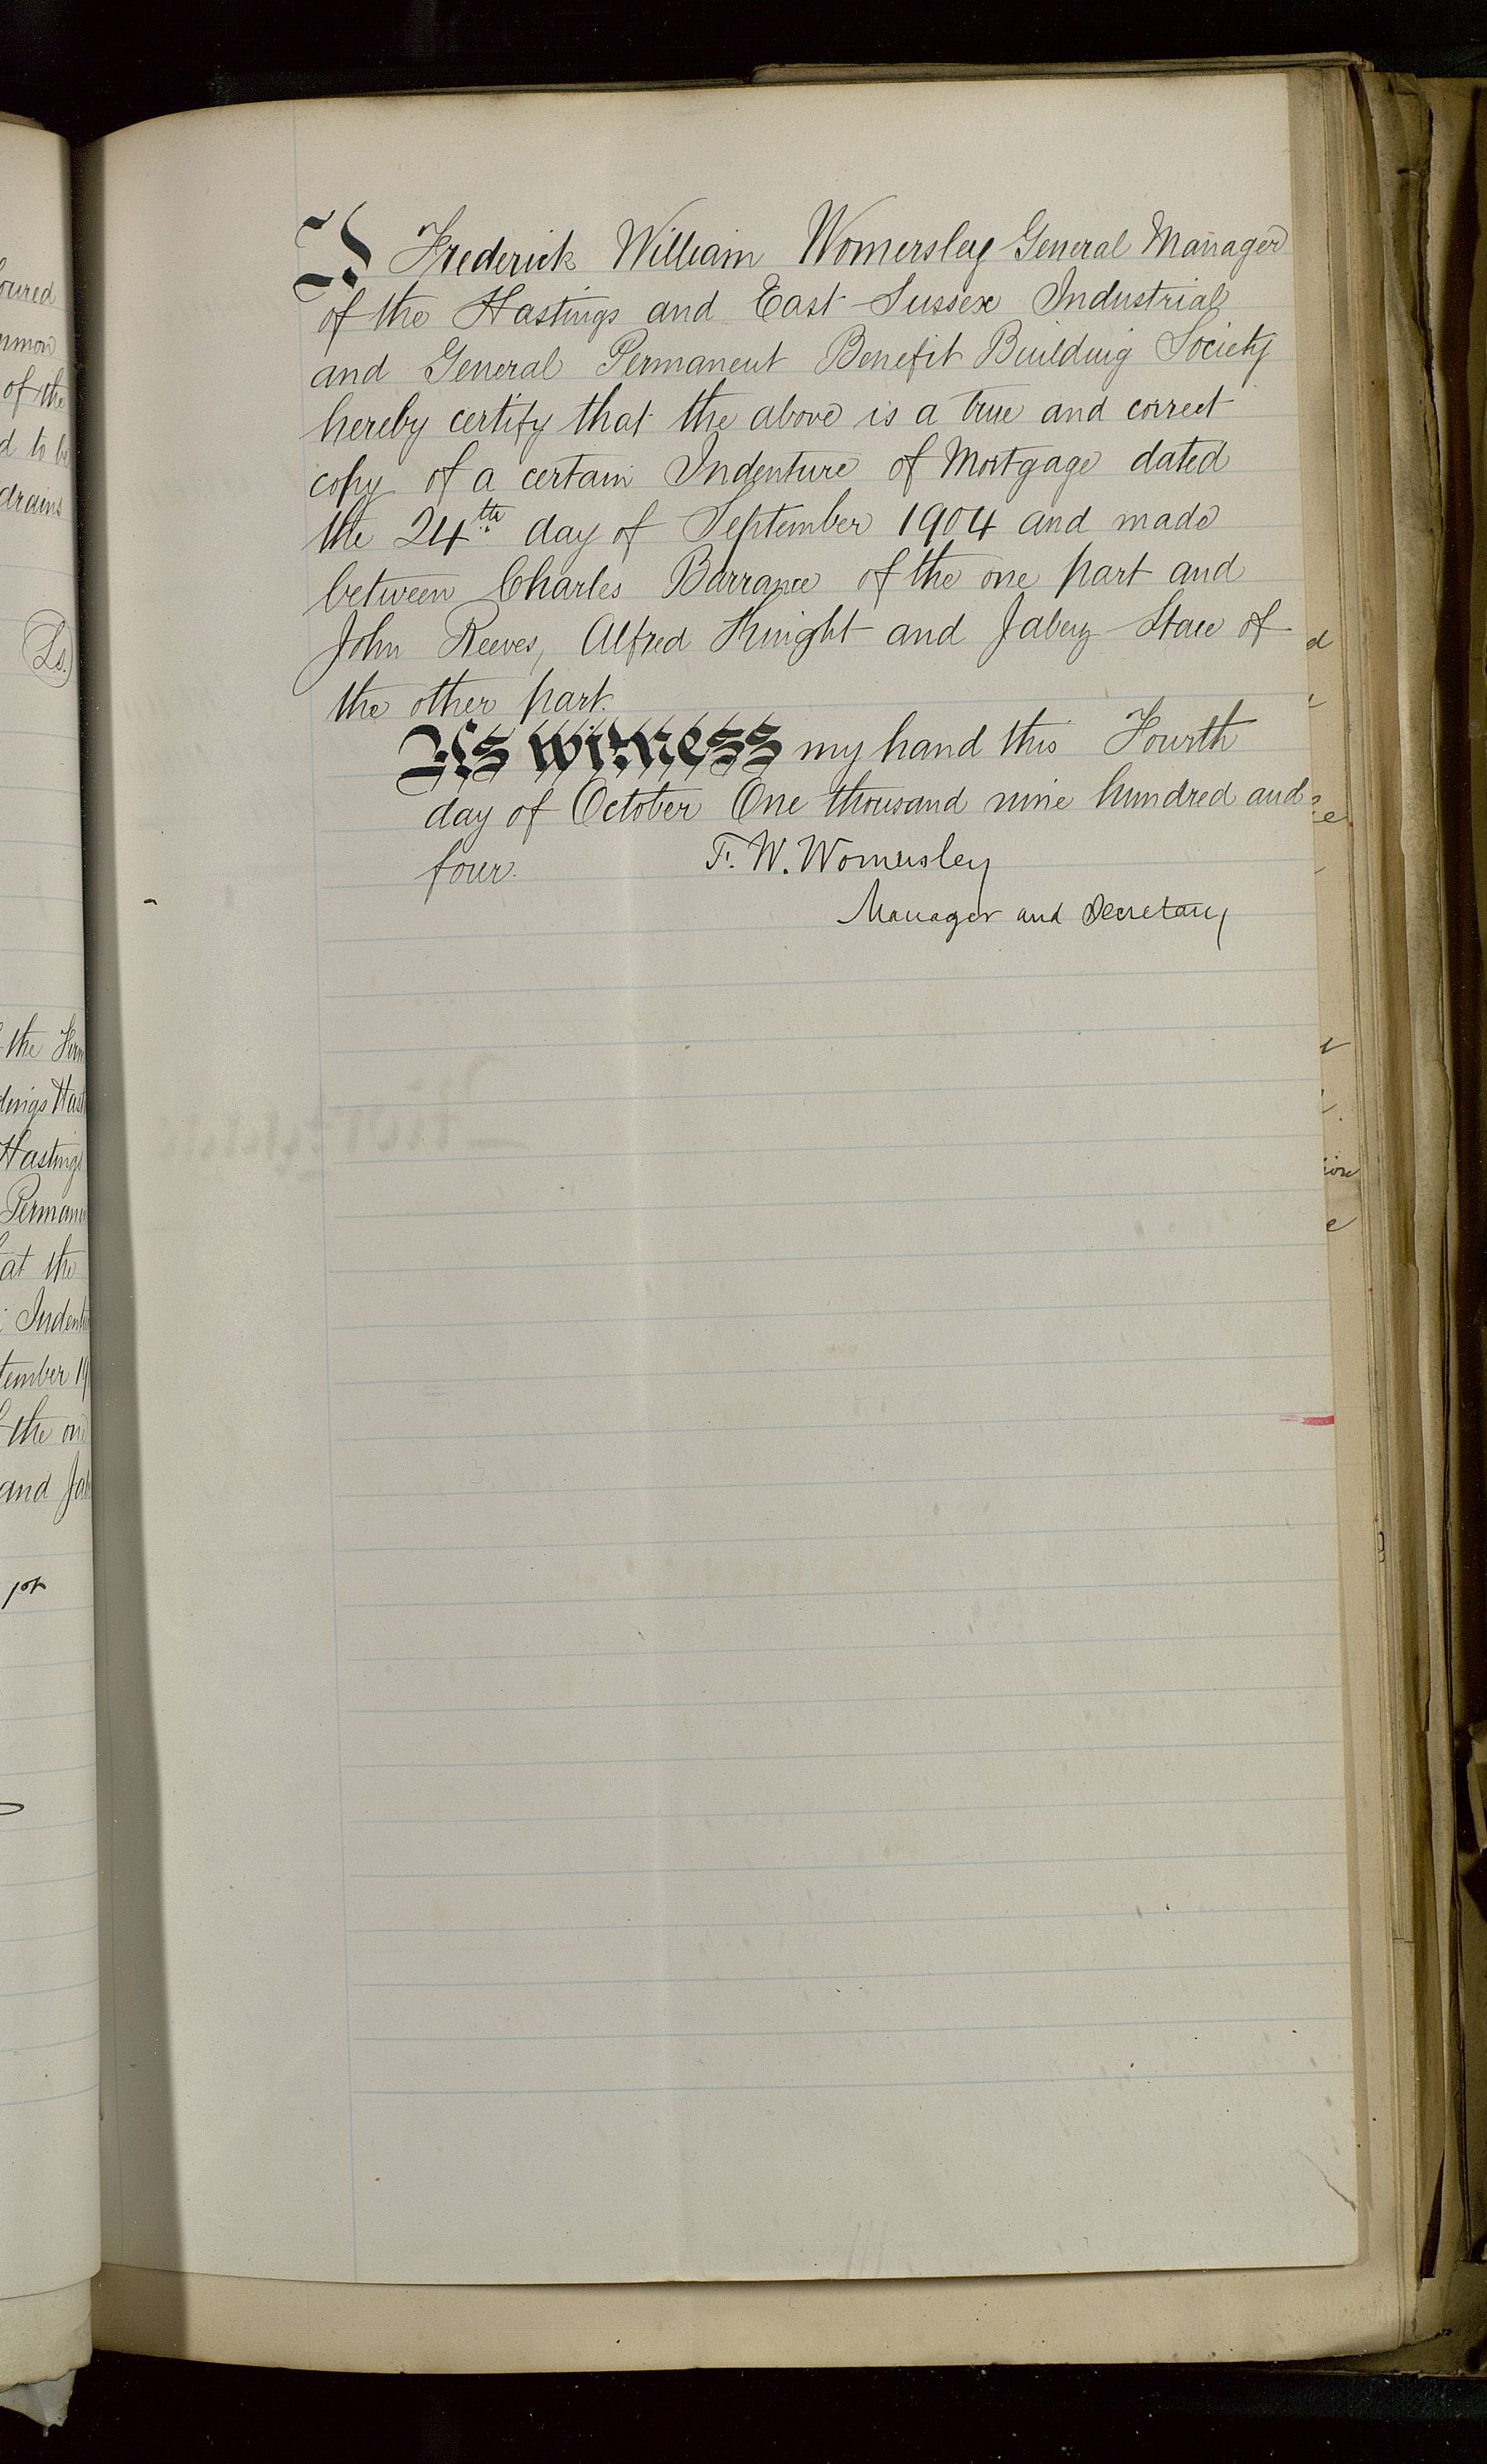 oured
mmon
of the
d to be
drains
Ls.
the Firm
dings Hast
Hastings
Permane
at the
Indent
tember 19
the one
and Jab
I Frederick William Womersley General Manager
of the Hastings and East Sussex Industrial
and General Permanent Benefit Building Society
hereby certify that the above is a true and correct
copy of a certain Indenture of Mortgage dated
the 24th day of September 1904 and made
between Charles Barrance of the one part and
John Reeves, Alfred Knight and Jabez Stace of
the other part.
As witness my hand this Fourth
day of October One thousand nine hundred and
four.
F. W. Womersley
Manager and Secretary